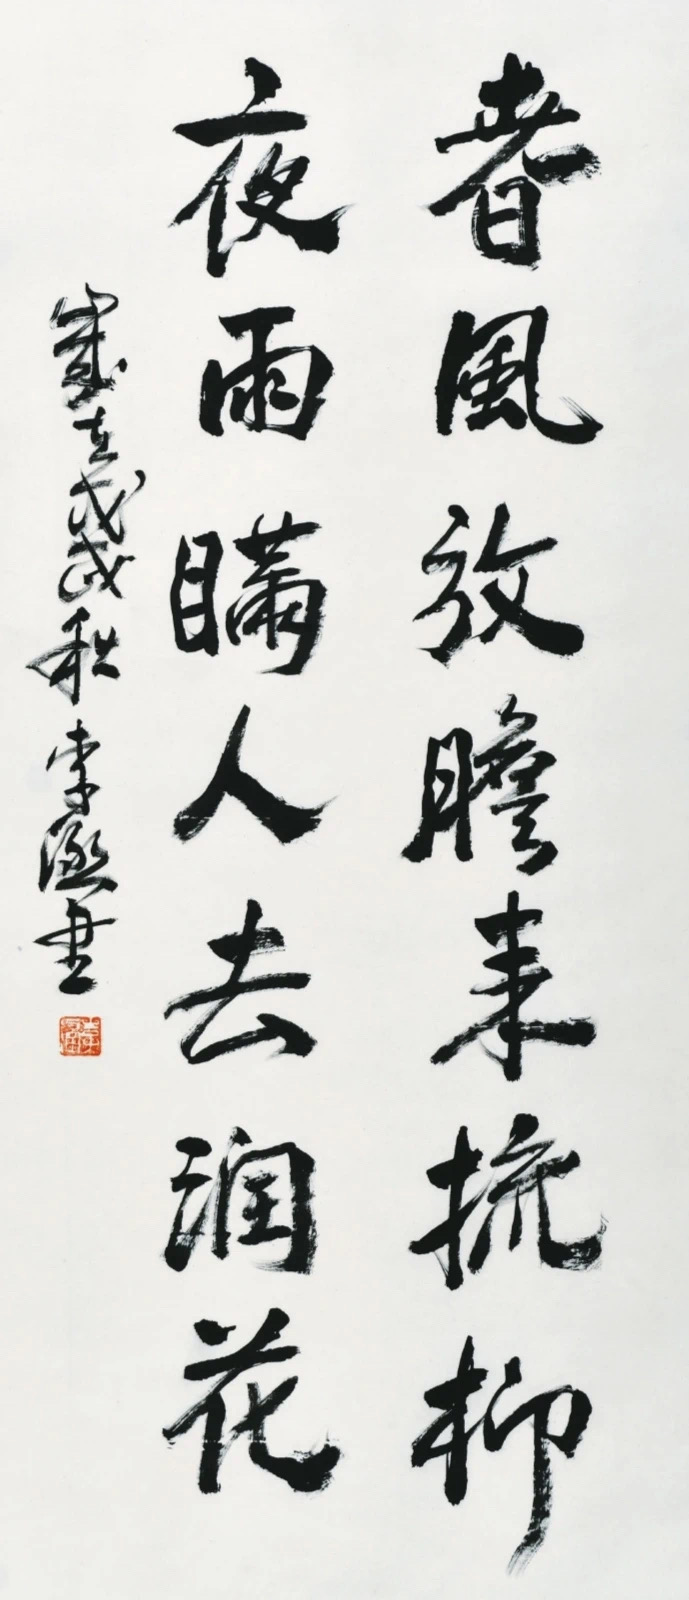 春風放膽来梳柳
夜雨瞞人去润花
歲在戊戌秋李書